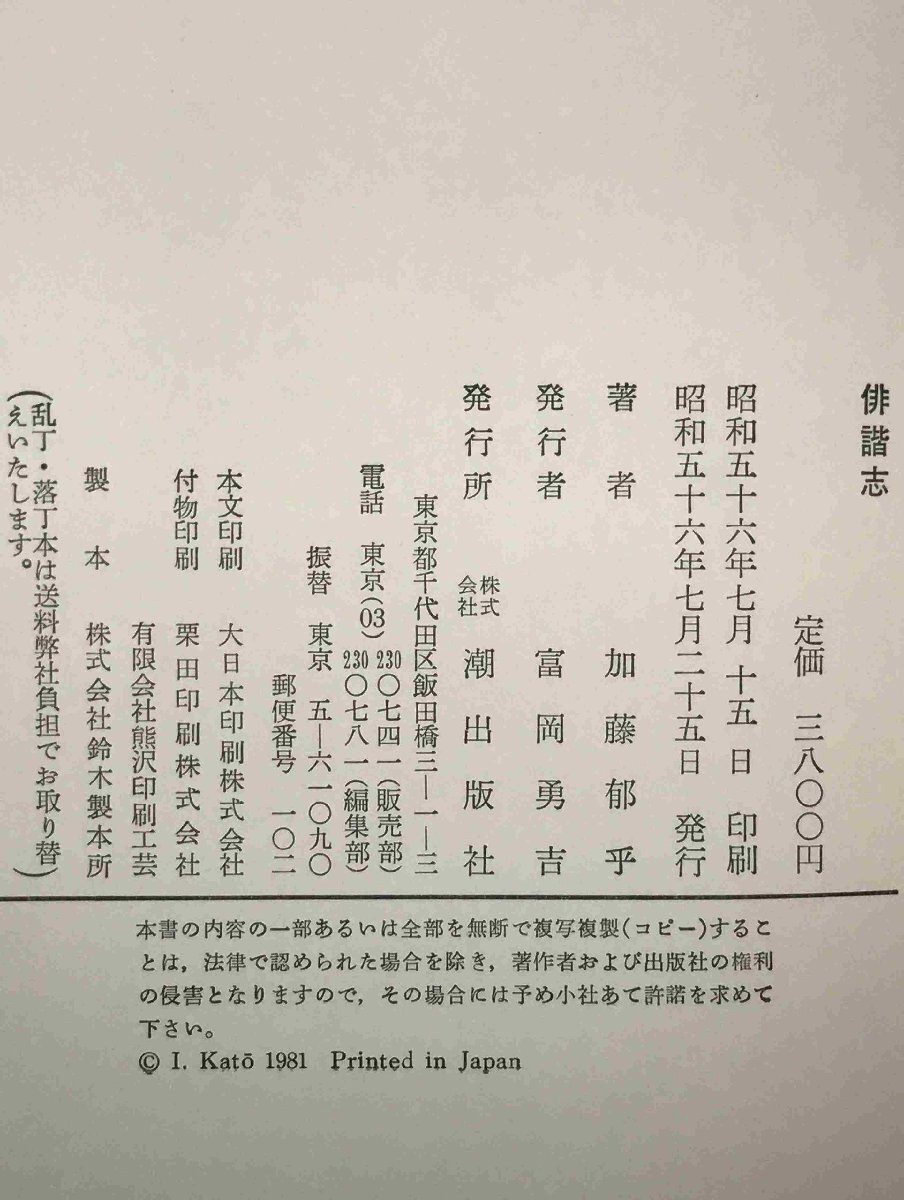 俳諧志
定価 三八〇〇円
昭和五十六年七月 十五 日 印刷
昭和五十六年七月二十五日 発行
著者 加藤郁乎
発行者 富岡勇吉
発行所 株式会社 潮出版社
東京都千代田区飯田橋三―一―三
電話 東京(03) 230〇七四一(販売部)
230〇七八一(編集部)
振替 東京 五―六一〇九〇
郵便番号 一〇二
本文印刷 大日本印刷株式会社
付物印刷 栗田印刷株式会社
有限会社熊沢印刷工芸
製本 株式会社鈴木製本所
(乱丁・落丁本は送料弊社負担でお取り替
えいたします。)
本書の内容の一部あるいは全部を無断で複写複製(コピー)するこ
とは,法律で認められた場合を除き,著作者および出版社の権利
の侵害となりますので,その場合には予め小社あて許諾を求めて
下さい。
© I. Katō 1981 Printed in Japan